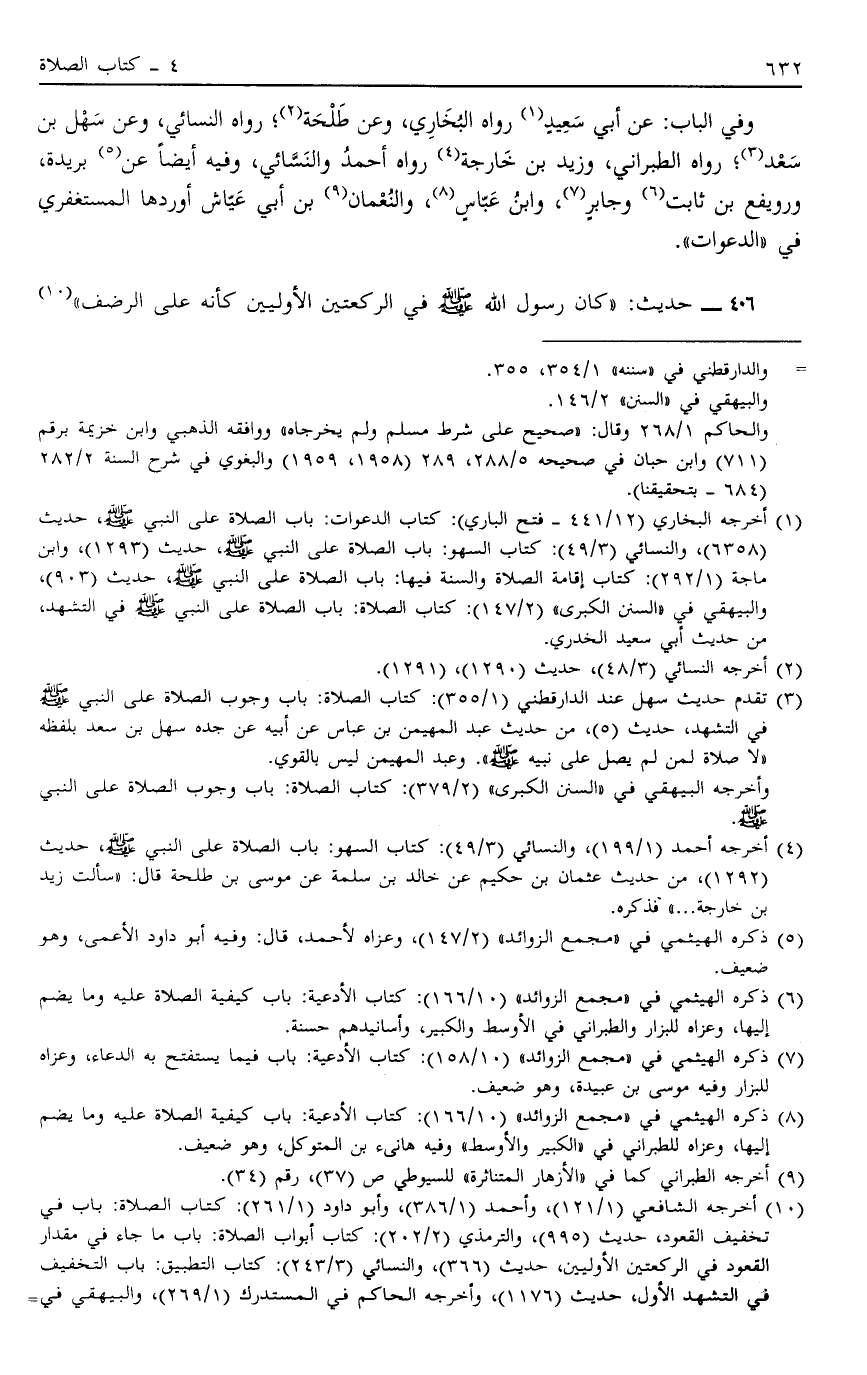 ٦٣٢
٤ ـ كتاب الصلاة
وفي الباب: عن أبي سَعِيدٍ(١) رواه البُخَارِي، وعن طَلْحَة(٢)؛ رواه النسائي، وعن سَهْل بن
سَعْد(٣)؛ رواه الطبراني، وزيد بن خَارجة(٤) رواه أحمدُ والنَسَّائي، وفيه أيضاً عن(٥) بريدة،
ورويفع بن ثابت(٦) وجابرٍ(٧)، وابنُ عَبّاسٍ(٨)، والنُعْمان(٩) بن أبي عَيّاش أوردها المستغفري
في «الدعوات».
٤٠٦ ــ حديث: «كان رسول الله ﷺ في الركعتين الأوليين كأنه على الرضف»(١٠)
= والدارقطني في «سننه» ٣٥٤/١، ٣٥٥.
والبيهقي في «السنن» ١٤٦/٢.
والحاكم ٢٦٨/١ وقال: «صحيح على شرط مسلم ولم يخرجاه» ووافقه الذهبي وابن خزيمة برقم
(٧١١) وابن حبان في صحيحه ٢٨٨/٥، ٢٨٩ (١٩٥٨، ١٩٥٩) والبغوي في شرح السنة ٢٨٢/٢
(٦٨٤ ـ بتحقيقنا).
(١) أخرجه البخاري (٤٤١/١٢ ـ فتح الباري): كتاب الدعوات: باب الصلاة على النبي ﷺ، حديث
(٦٣٥٨)، والنسائي (٤٩/٣): كتاب السهو: باب الصلاة على النبي ﷺ، حديث (١٢٩٣)، وابن
ماجة (٢٩٢/١): كتاب إقامة الصلاة والسنة فيها: باب الصلاة على النبي ﷺ، حديث (٩٠٣)،
والبيهقي في «السنن الكبرى» (١٤٧/٢): كتاب الصلاة: باب الصلاة على النبي ﷺ في التشهد،
من حديث أبي سعيد الخدري.
(٢) أخرجه النسائي (٤٨/٣)، حديث (١٢٩٠)، (١٢٩١).
(٣) تقدم حديث سهل عند الدارقطني (٣٥٥/١): كتاب الصلاة: باب وجوب الصلاة على النبي ﷺ
في التشهد، حديث (٥)، من حديث عبد المهيمن بن عباس عن أبيه عن جده سهل بن سعد بلفظه
«لا صلاة لمن لم يصل على نبيه ﷺ». وعبد المهيمن ليس بالقوي.
وأخرجه البيهقي في «السنن الكبرى» (٣٧٩/٢): كتاب الصلاة: باب وجوب الصلاة على النبي
ﷺ.
(٤) أخرجه أحمد (١٩٩/١)، والنسائي (٤٩/٣): كتاب السهو: باب الصلاة على النبي ﷺ، حديث
(١٢٩٢)، من حديث عثمان بن حكيم عن خالد بن سلمة عن موسى بن طلحة قال: «سألت زيد
بن خارجة...» فذكره.
(٥) ذكره الهيثمي في «مجمع الزوائد» (١٤٧/٢)، وعزاه لأحمد، قال: وفيه أبو داود الأعمى، وهو
ضعيف.
(٦) ذكره الهيثمي في «مجمع الزوائد» (١٦٦/١٠): كتاب الأدعية: باب كيفية الصلاة عليه وما يضم
إليها، وعزاه للبزار والطبراني في الأوسط والكبير، وأسانيدهم حسنة.
(٧) ذكره الهيثمي في «مجمع الزوائد» (١٥٨/١٠): كتاب الأدعية: باب فيما يستفتح به الدعاء، وعزاه
للبزار وفيه موسى بن عبيدة، وهو ضعيف.
(٨) ذكره الهيثمي في «مجمع الزوائد» (١٦٦/١٠): كتاب الأدعية: باب كيفية الصلاة عليه وما يضم
إليها، وعزاه للطبراني في «الكبير والأوسط» وفيه هانىء بن المتوكل، وهو ضعيف.
(٩) أخرجه الطبراني كما في «الأزهار المتناثرة» للسيوطي ص (٣٧)، رقم (٣٤).
(١٠) أخرجه الشافعي (١٢١/١)، وأحمد (٣٨٦/١)، وأبو داود (٢٦١/١): كتاب الصلاة: باب في
تخفيف القعود، حديث (٩٩٥)، والترمذي (٢٠٢/٢): كتاب أبواب الصلاة: باب ما جاء في مقدار
القعود في الركعتين الأوليين، حديث (٣٦٦)، والنسائي (٢٤٣/٣): كتاب التطبيق: باب التخفيف
في التشهد الأول، حديث (١١٧٦)، وأخرجه الحاكم في المستدرك (٢٦٩/١)، والبيهقي في =